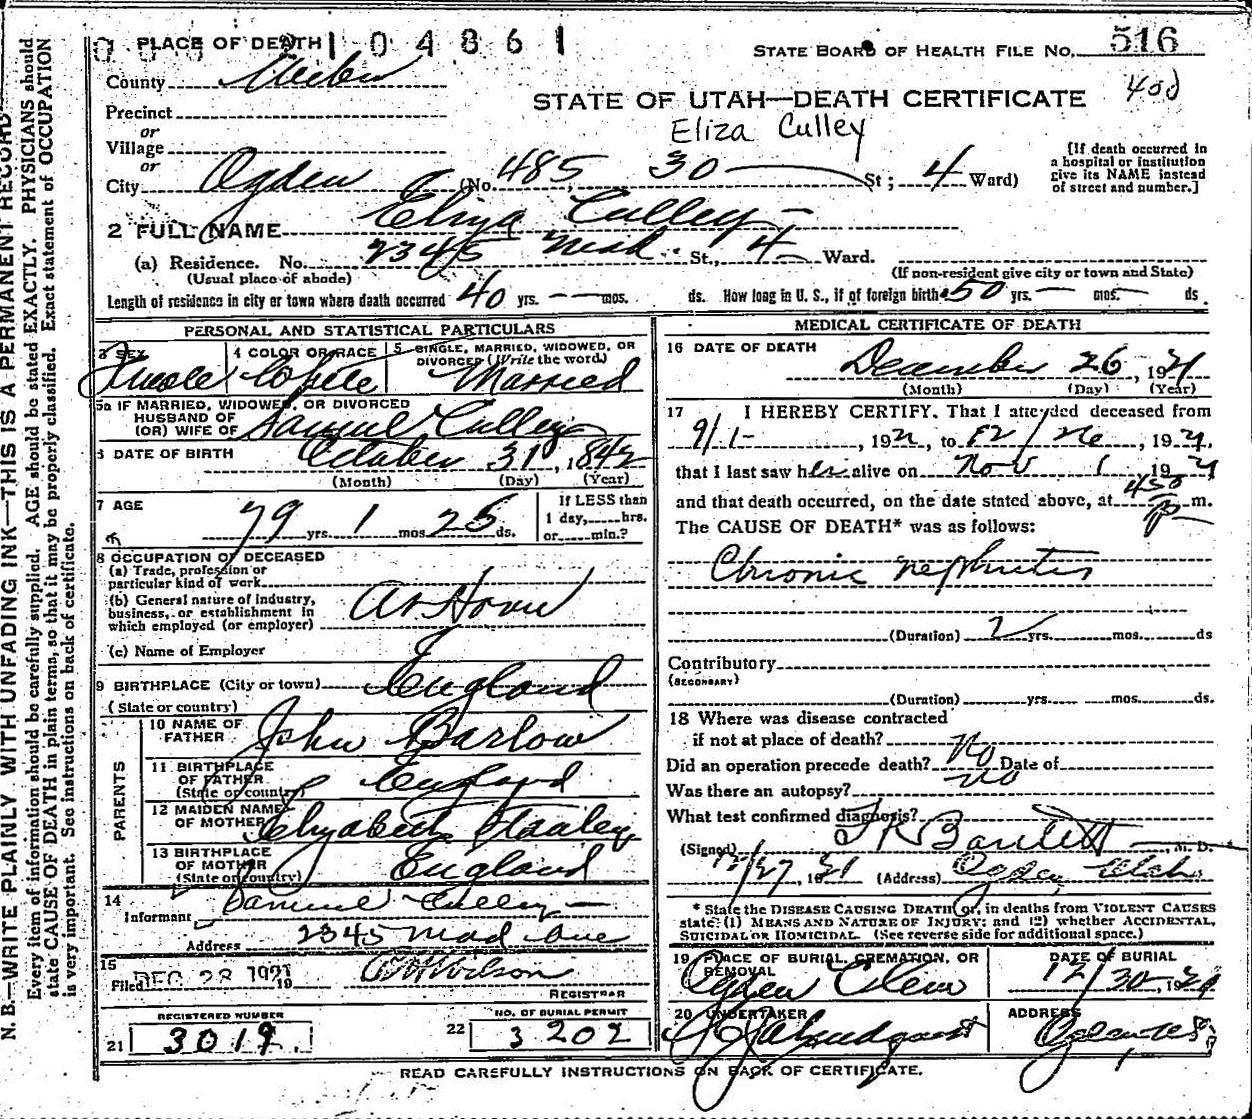 PLACE OF DEATH 104861
STATE BOARD OF HEALTH FILE NO. 516
County Weber
400
STATE OF UTAH—DEATH CERTIFICATE
Precinct
Eliza Culley
or
Village
or
City Ogden (No. 485, 30 St; 4 Ward)
[If death occurred in a hospital or institution give its NAME instead of street and number.]
2 FULL NAME Eliza Culley
(a) Residence. No. 2345 Mad. St., 4 Ward.
(Usual place of abode) (If non-resident give city or town and State)
Length of residence in city or town where death occurred 40 yrs. — mos. ds. How long in U. S., if of foreign birth 50 yrs. — mos. — ds.
PERSONAL AND STATISTICAL PARTICULARS
3 SEX Female
4 COLOR OR RACE White
5 SINGLE, MARRIED, WIDOWED, OR DIVORCED (Write the word) Married
5a IF MARRIED, WIDOWED, OR DIVORCED
HUSBAND OF
(OR) WIFE OF Samuel Culley
6 DATE OF BIRTH October 31, 1842
(Month) (Day) (Year)
7 AGE 79 yrs. 1 mos. 25 ds.
If LESS than
1 day, hrs.
or min.?
8 OCCUPATION OF DECEASED
(a) Trade, profession or
particular kind of work
(b) General nature of industry,
business, or establishment in
which employed (or employer) At Home
(c) Name of Employer
9 BIRTHPLACE (City or town) England
(State or country)
PARENTS
10 NAME OF
FATHER John Barlow
11 BIRTHPLACE
OF FATHER
(State or country) England
12 MAIDEN NAME
OF MOTHER Elizabeth
13 BIRTHPLACE
OF MOTHER
(State or country) England
14
Informant Samuel Culley
Address 2345 Mad Ave
15
Filed DEC 28 1921 19 Wilson
REGISTRAR
REGISTERED NUMBER
21 3019.
NO. OF BURIAL PERMIT
22 3202
MEDICAL CERTIFICATE OF DEATH
16 DATE OF DEATH
December 26, 1921
(Month) (Day) (Year)
17 I HEREBY CERTIFY, That I attended deceased from
9/1-, 1921, to 12/26, 1921,
that I last saw her alive on Nov 1 1921
and that death occurred, on the date stated above, at 450 p m.
The CAUSE OF DEATH* was as follows:
Chronic nephritis
(Duration) 2 yrs. mos. ds
Contributory
(SECONDARY)
(Duration) yrs. mos. ds.
18 Where was disease contracted
if not at place of death?
Did an operation precede death? No Date of
Was there an autopsy? no
What test confirmed diagnosis?
(Signed) Bartlett, M. D.
12/27, 1921 (Address) Ogden Utah
* State the DISEASE CAUSING DEATH or, in deaths from VIOLENT CAUSES
state: (1) MEANS AND NATURE OF INJURY; and (2) whether ACCIDENTAL,
SUICIDAL OR HOMICIDAL. (See reverse side for additional space.)
19 PLACE OF BURIAL, CREMATION, OR
REMOVAL
Ogden Cem
DATE OF BURIAL
12/30, 1921
20 UNDERTAKER
ADDRESS
READ CAREFULLY INSTRUCTIONS ON BACK OF CERTIFICATE.
N. B.—WRITE PLAINLY WITH UNFADING INK—THIS IS A PERMANENT RECORD
Every item of information should be carefully supplied. AGE should be stated EXACTLY. PHYSICIANS should
state CAUSE OF DEATH in plain terms, so that it may be properly classified. Exact statement of OCCUPATION
is very important. See instructions on back of certificate.